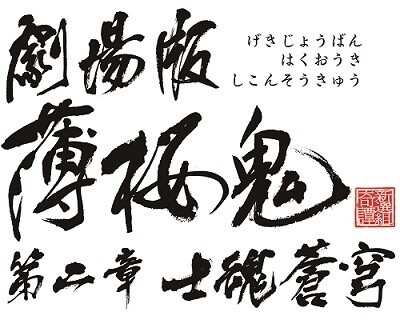 劇場版
げきじょうばん
はくおうき
しこんそうきゅう
薄桜鬼
新選組
奇譚
第二章 士魂蒼穹